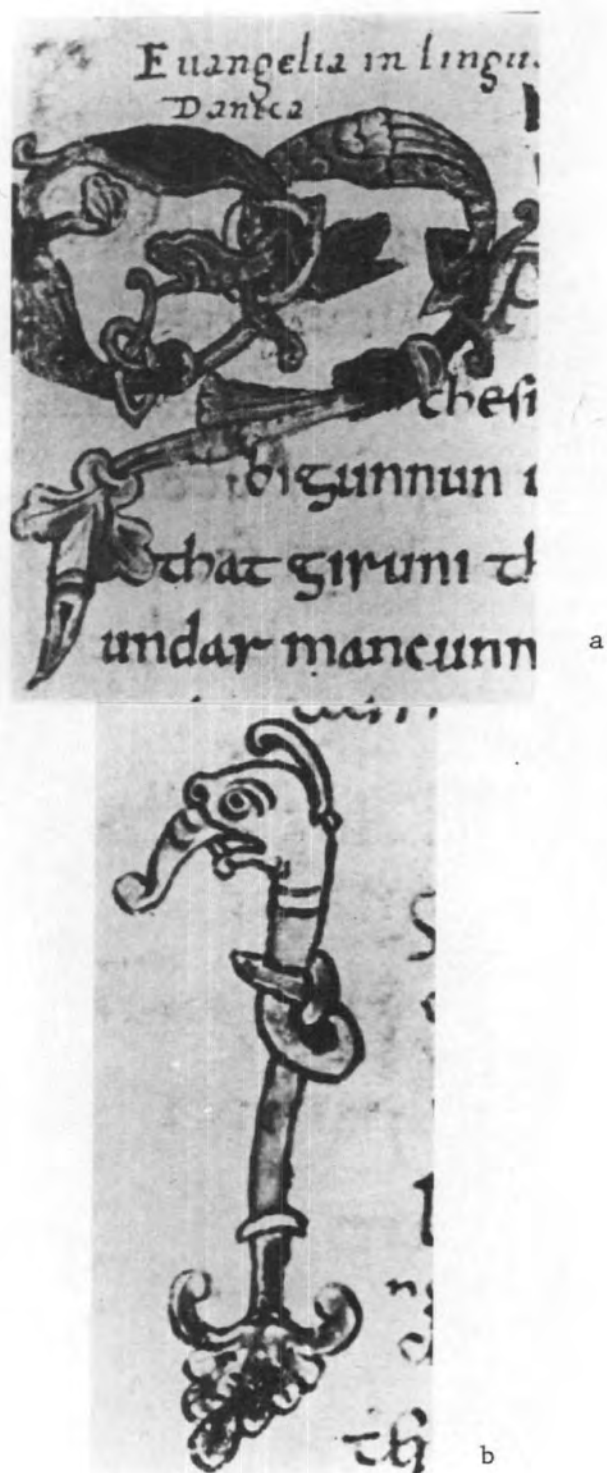 Euangelia in lingu
Danica
chesi
bigunnun
that giruni th
undar mancunn
a
b
th